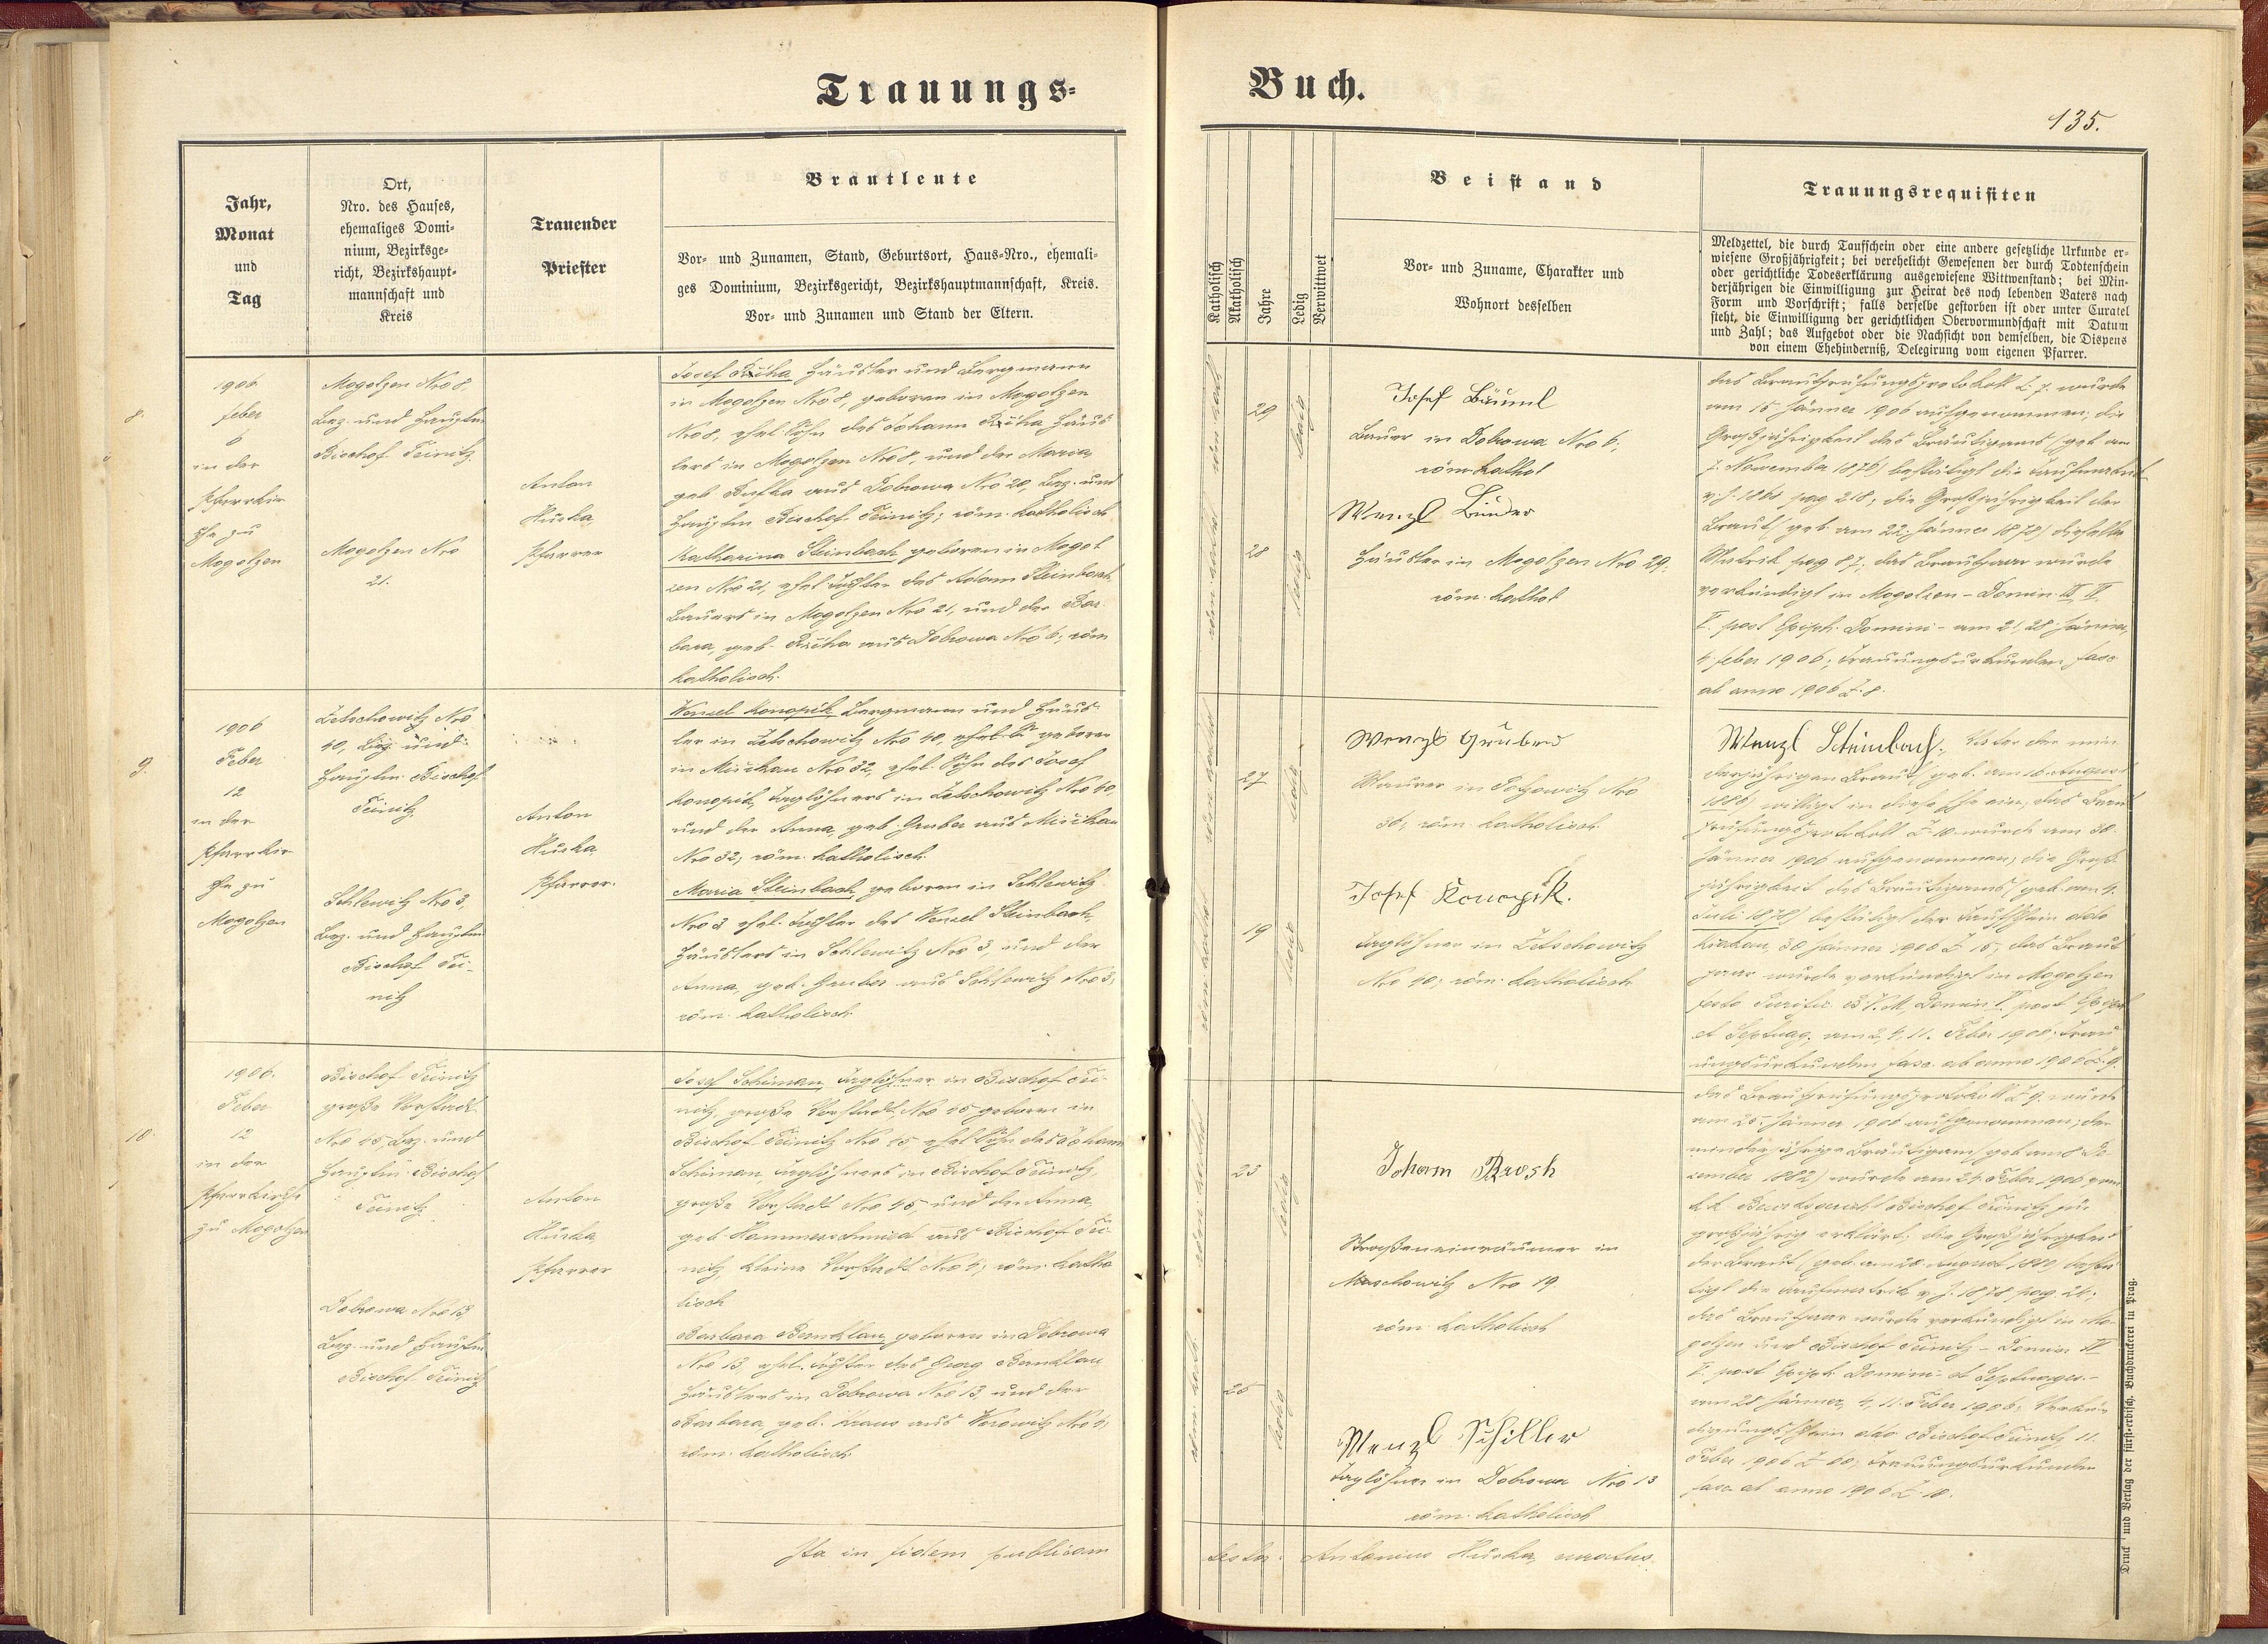 Trauungs-
Buch.
135.
Jahr,
Monat
und
Tag
Ort,
Nro. des Hauses,
ehemaliges Domi-
nium, Bezirksge-
richt, Bezirkshaupt-
mannschaft und
Kreis
Trauender
Priester
Brautleute
Vor- und Zunamen, Stand, Geburtsort, Haus-Nro., ehemali-
ges Dominium, Bezirksgericht, Bezirkshauptmannschaft, Kreis.
Vor- und Zunamen und Stand der Eltern.
Katholisch
Akatholisch
Jahre
Ledig
Verwittwet
Beistand
Vor- und Zuname, Charakter und
Wohnort desselben
Trauungsrequisiten
Meldzettel, die durch Taufschein oder eine andere gesetzliche Urkunde er-
wiesene Großjährigkeit; bei verehelicht Gewesenen der durch Todtenschein
oder gerichtliche Todeserklärung ausgewiesene Wittwenstand; bei Min-
derjährigen die Einwilligung zur Heirat des noch lebenden Vaters nach
Form und Vorschrift; falls derselbe gestorben ist oder unter Curatel
steht, die Einwilligung der gerichtlichen Obervormundschaft mit Datum
und Zahl; das Aufgebot oder die Nachsicht von demselben, die Dispens
von einem Ehehinderniß, Delegirung vom eigenen Pfarrer.
8.
1906
feber
6
in der
Pfarrkir
che zu
Mogolzen
Mogolzen Nro 8,
Bez. und Hauptm
Bischof Teinitz
Mogolzen Nro
21.
Anton
Huska
Pfarrer
Josef Růiha Häusler und Bergmann
in Mogolzen Nro 8, geboren in Mogolzen
Nro 8, ehel. Sohn des Johann Häus
lers in Mogolzen Nro 8, und der Maria
geb. aus Dobrowa Nro 20, Bez. und
Hauptm Bischof Teinitz; röm. katholisch
Katharina Steinbach geboren in Mogol
zen Nro 21, ehel Tochter des Adam Steinbach
Bauers in Mogolzen Nro 21, und der Bar
bara, geb. aus Dobrowa Nro 6; röm
katholisch.
29
28
ledig
ledig
Josef Bäuml
Bauer in Dobrowa Nro 6;
röm kathol
Wenzl Binder
Häusler in Mogolzen Nro 29.
röm. kathol
das Brautprüfungsprotokoll Z. 7. wurde
am 15 Jänner 1906 aufgenommen; die
Großjährigkeit des Bräutigams (geb am
7. November 1876) bestätigt die Taufmatrik
pag 218; die Großjährigkeit der
Braut (geb. am 22. Jänner 1878) dieselbe
Matrik pag 87; das Brautpaar wurde
verkündigt in Mogolzen - Domin. III IV
V. post Epiph. Domini - am 21, 28 Jänner,
4 feber 1906; Trauungsurkunden fasc
ab anno 1906 Z. 8.
9.
1906
Feber
12
in der
Pfarrkir
che zu
Mogolzen
Zetschowitz Nro
40, Bez. und
Hauptm. Bischof
Teinitz
Schlewitz Nro 3,
Bez. und Hauptm
Bischof Tei-
nitz
Anton
Huska
Pfarrer.
Wenzel Konopik Bergmann und Häus
ler in Zetschowitz Nro 40, geboren
in Nro 32, ehel. Sohn des Josef
Konopik, Taglöhners in Zetschowitz Nro 40,
und der Anna, geb. Gruber aus
Nro 32; röm. katholisch.
Maria Steinbach, geboren in Schlewitz
Nro 3 ehel. Tochter des Wenzel Steinbach,
Häuslers in Schlewitz Nro 3, und der
Anna, geb. Gruber aus Schlewitz Nro 3;
röm. katholisch.
27
19
ledig
ledig
Wenzl Gruber
Maurer in Nro
36; röm. katholisch.
Josef Konopik.
Taglöhner in Zetschowitz
Nro 40; röm. katholisch
Wenzl Steinbach, Vater der min
derjährigen Braut (geb. am 16. August
1886) willigt in diese Ehe ein; das Braut
prüfungsprotokoll Z. 10 wurde am 30.
Jänner 1906 aufgenommen; die Groß
jährigkeit des Bräutigams (geb. am 4.
Juli 1878) bestätigt der Taufschein ddo
30 Jänner 1906 Z 15; das Braut
paar wurde verkündigt in Mogolzen
festo Purific. B. V. M, Domin V. post Epiph
et Septuag. am 2, 4, 11. Feber 1906; Trau
ungsurkunden fasc. ab anno 1906 Z. 9.
10.
1906.
Feber
12
in der
Pfarrkirche
zu Mogolzen
Bischof Teinitz
große Vorstadt
Nro 45, Bez. und
Hauptm. Bischof
Teinitz
Dobrowa Nro 13,
Bez. und Hauptm
Bischof Teinitz
Anton
Huska
Pfarrer
Josef Schiman, Taglöhner in Bischof Tei
nitz, große Vorstadt Nro 45 geboren in
Bischof Teinitz Nro 45, ehel Sohn des Johann
Schiman, Taglöhners in Bischof Teinitz,
große Vorstadt Nro 45, und der Anna,
geb. Hammerschmied aus Bischof Tei
nitz, kleine Vorstadt Nro 4; röm. katho
lisch
Barbara Bernklau geboren in Dobrowa
Nro 13, ehel. Tochter des Georg Bernklau
Häuslers in Dobrowa Nro 13 und der
Barbara geb. Kraus aus Nro 4;
röm. katholisch.
23
25
ledig
ledig
Johann Brosh
Straßeneinräumer in
Nro 19
röm. katholisch
Wenzl Schiller
Taglöhner in Dobrowa Nro 13
röm. katholisch
das Brautprüfungsprotokoll Z 9. wurde
am 25. Jänner 1906 aufgenommen; der
minderjährige Bräutigam (geb am De
zember 1882) wurde am 21. Feber 1906 vom
k.k. Bezirksgericht Bischof Teinitz für
großjährig erklärt; die Großjährigkeit
der Braut (geb. am 28. August 1880) bestä
tigt die Taufmatrik v. J. 1878 pag. 26;
das Brautpaar wurde verkündigt in Mo
golzen und Bischof Teinitz - Domin IV
V. post Epiph. Domini et Septuages. -
am 28 Jänner, 4, 11. Feber 1906; Verkün
digungsschein ddo Bischof Teinitz 11.
Feber 1906 Z 60; Trauungsurkunden
fasc. ab anno 1906 Z. 10.
Ita in fidem publicam
testor: Antonius Huska, curatus.
Druck und Verlag der fürsterzbisch. Buchdruckerei in Prag.